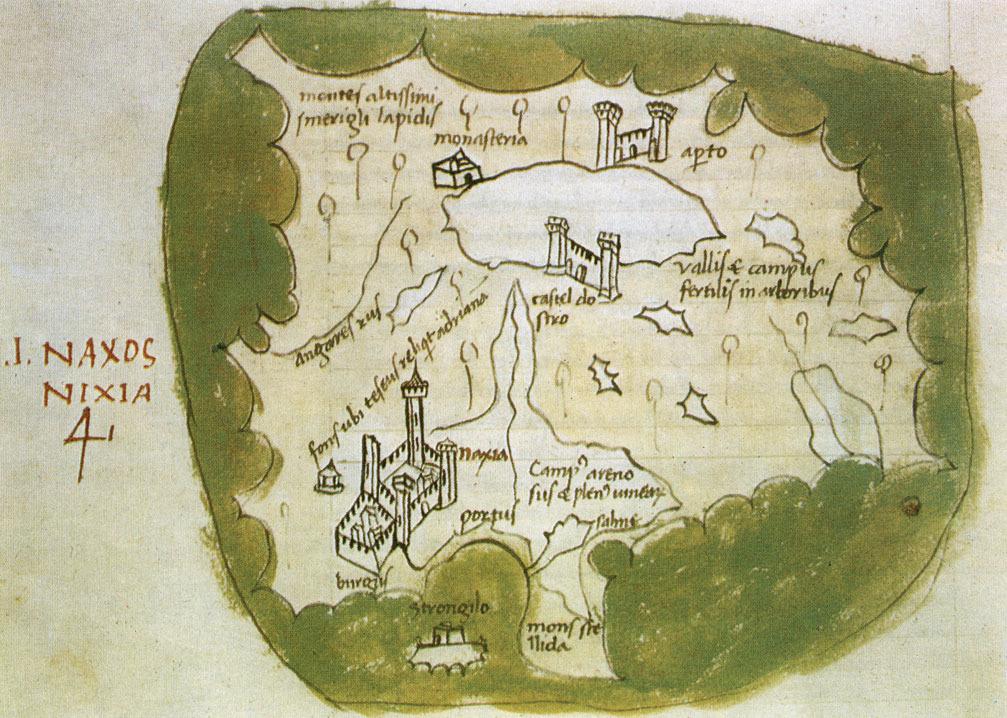 .I. NAXOS
NIXIA
4
montes altissimi
smerigli lapidis
monasteria
apto
vallis & campus
fertilis in arboribus
castel do
stro
angares rus
fons ubi teseus reliqt adriana
naxia
Camp⁹ areno
sus & plen⁹
portus
saline
burgus
strongilo
mons ste
llida